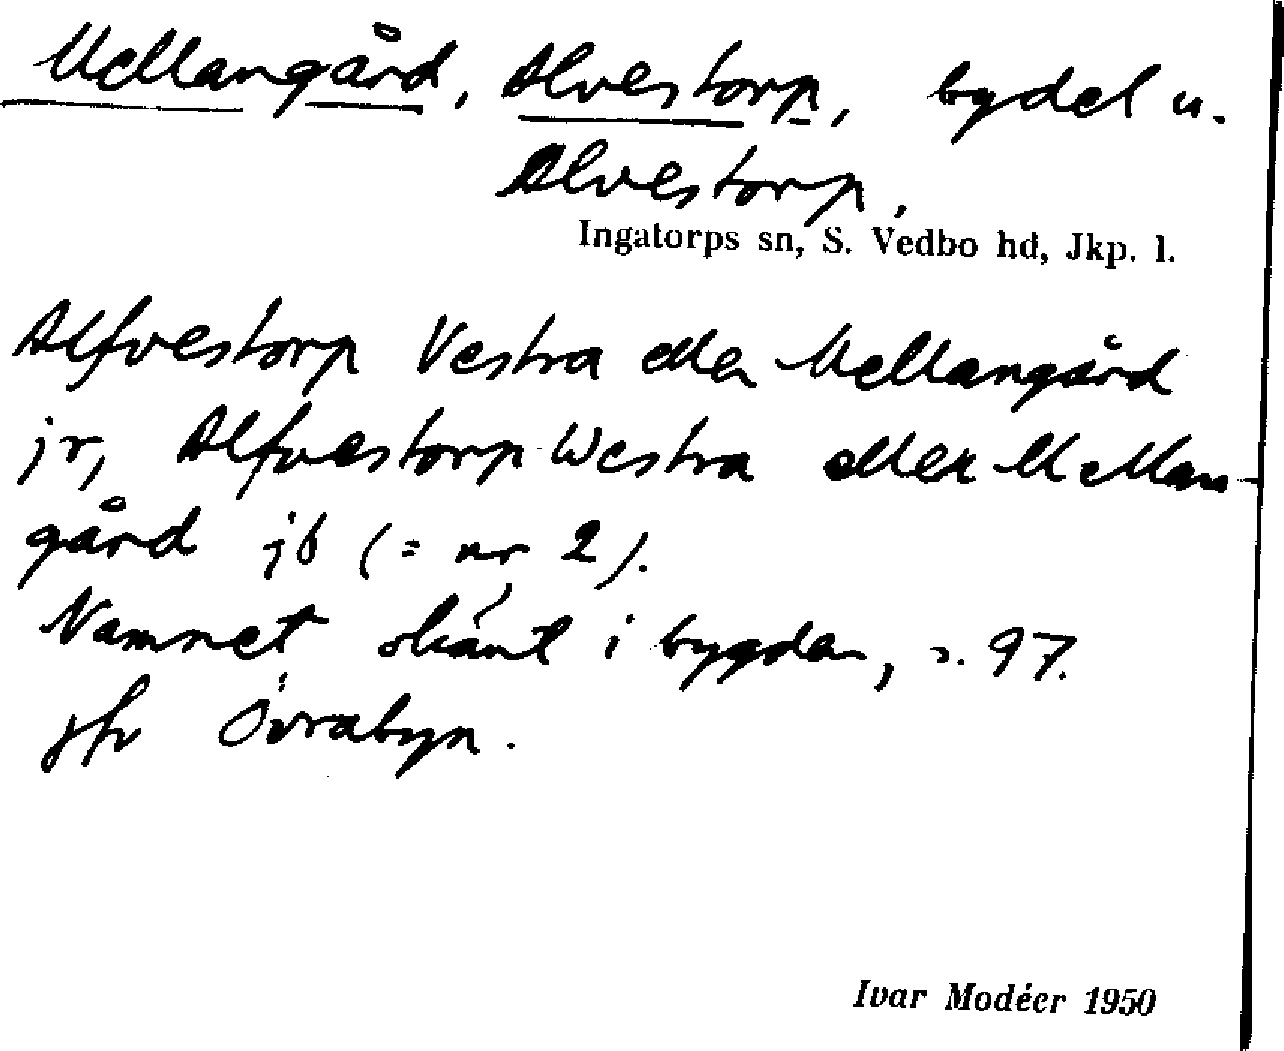 Mellangård, Alvestorp, bydel u.
Alvestorp.
Ingatorps sn, S. Vedbo hd, Jkp. l.
Alfvestorp Vestra eller Mellangård
jr, Alfvestorp Westra eller Mellan-
gård jb (= nr 2).
Namnet okänt i bygden, s. 97.
Jfr Övrabyn.
Ivar Modéer 1950